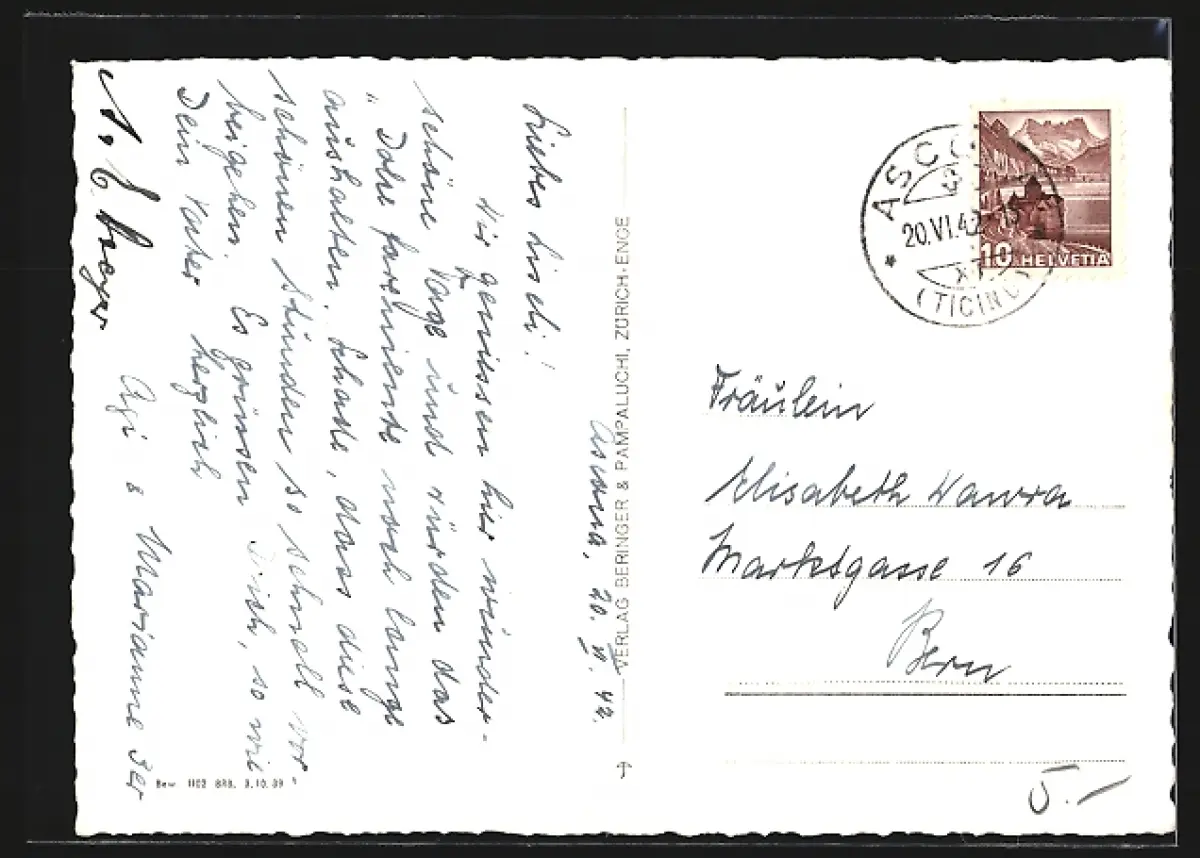 Ascona, 20. VI. 42.
Liebes Liseli!
Wir geniessen hier wunder-
schöne Tage und würden das
"Dolce farniente noch lange
aushalten. Schade, dass diese
schönen Stunden so schnell vor-
beigehen. Es grüssen Dich, so wie
Dein Vater herzlich
Agi & Marianne
VERLAG BERINGER & PAMPALUCHI, ZÜRICH-ENGE
Bew. 1102 BRB. 3.10.39
ASCO
20.VI.42
(TICINO)
10 HELVETIA
Fräulein
Elisabeth Wawra
Marktgasse 16
Bern
5.-